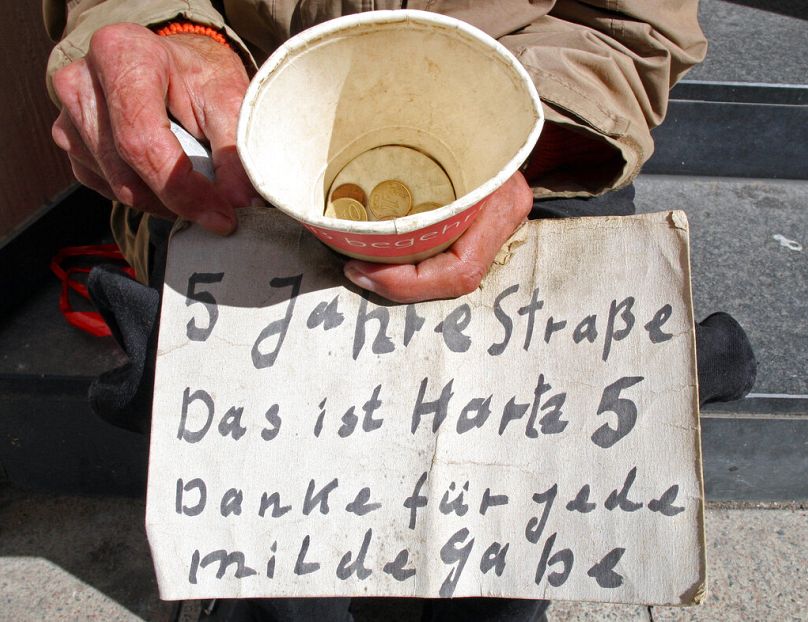 s begehr
5 Jahre Straße
Das ist Hartz 5
Danke für jede
milde Gabe